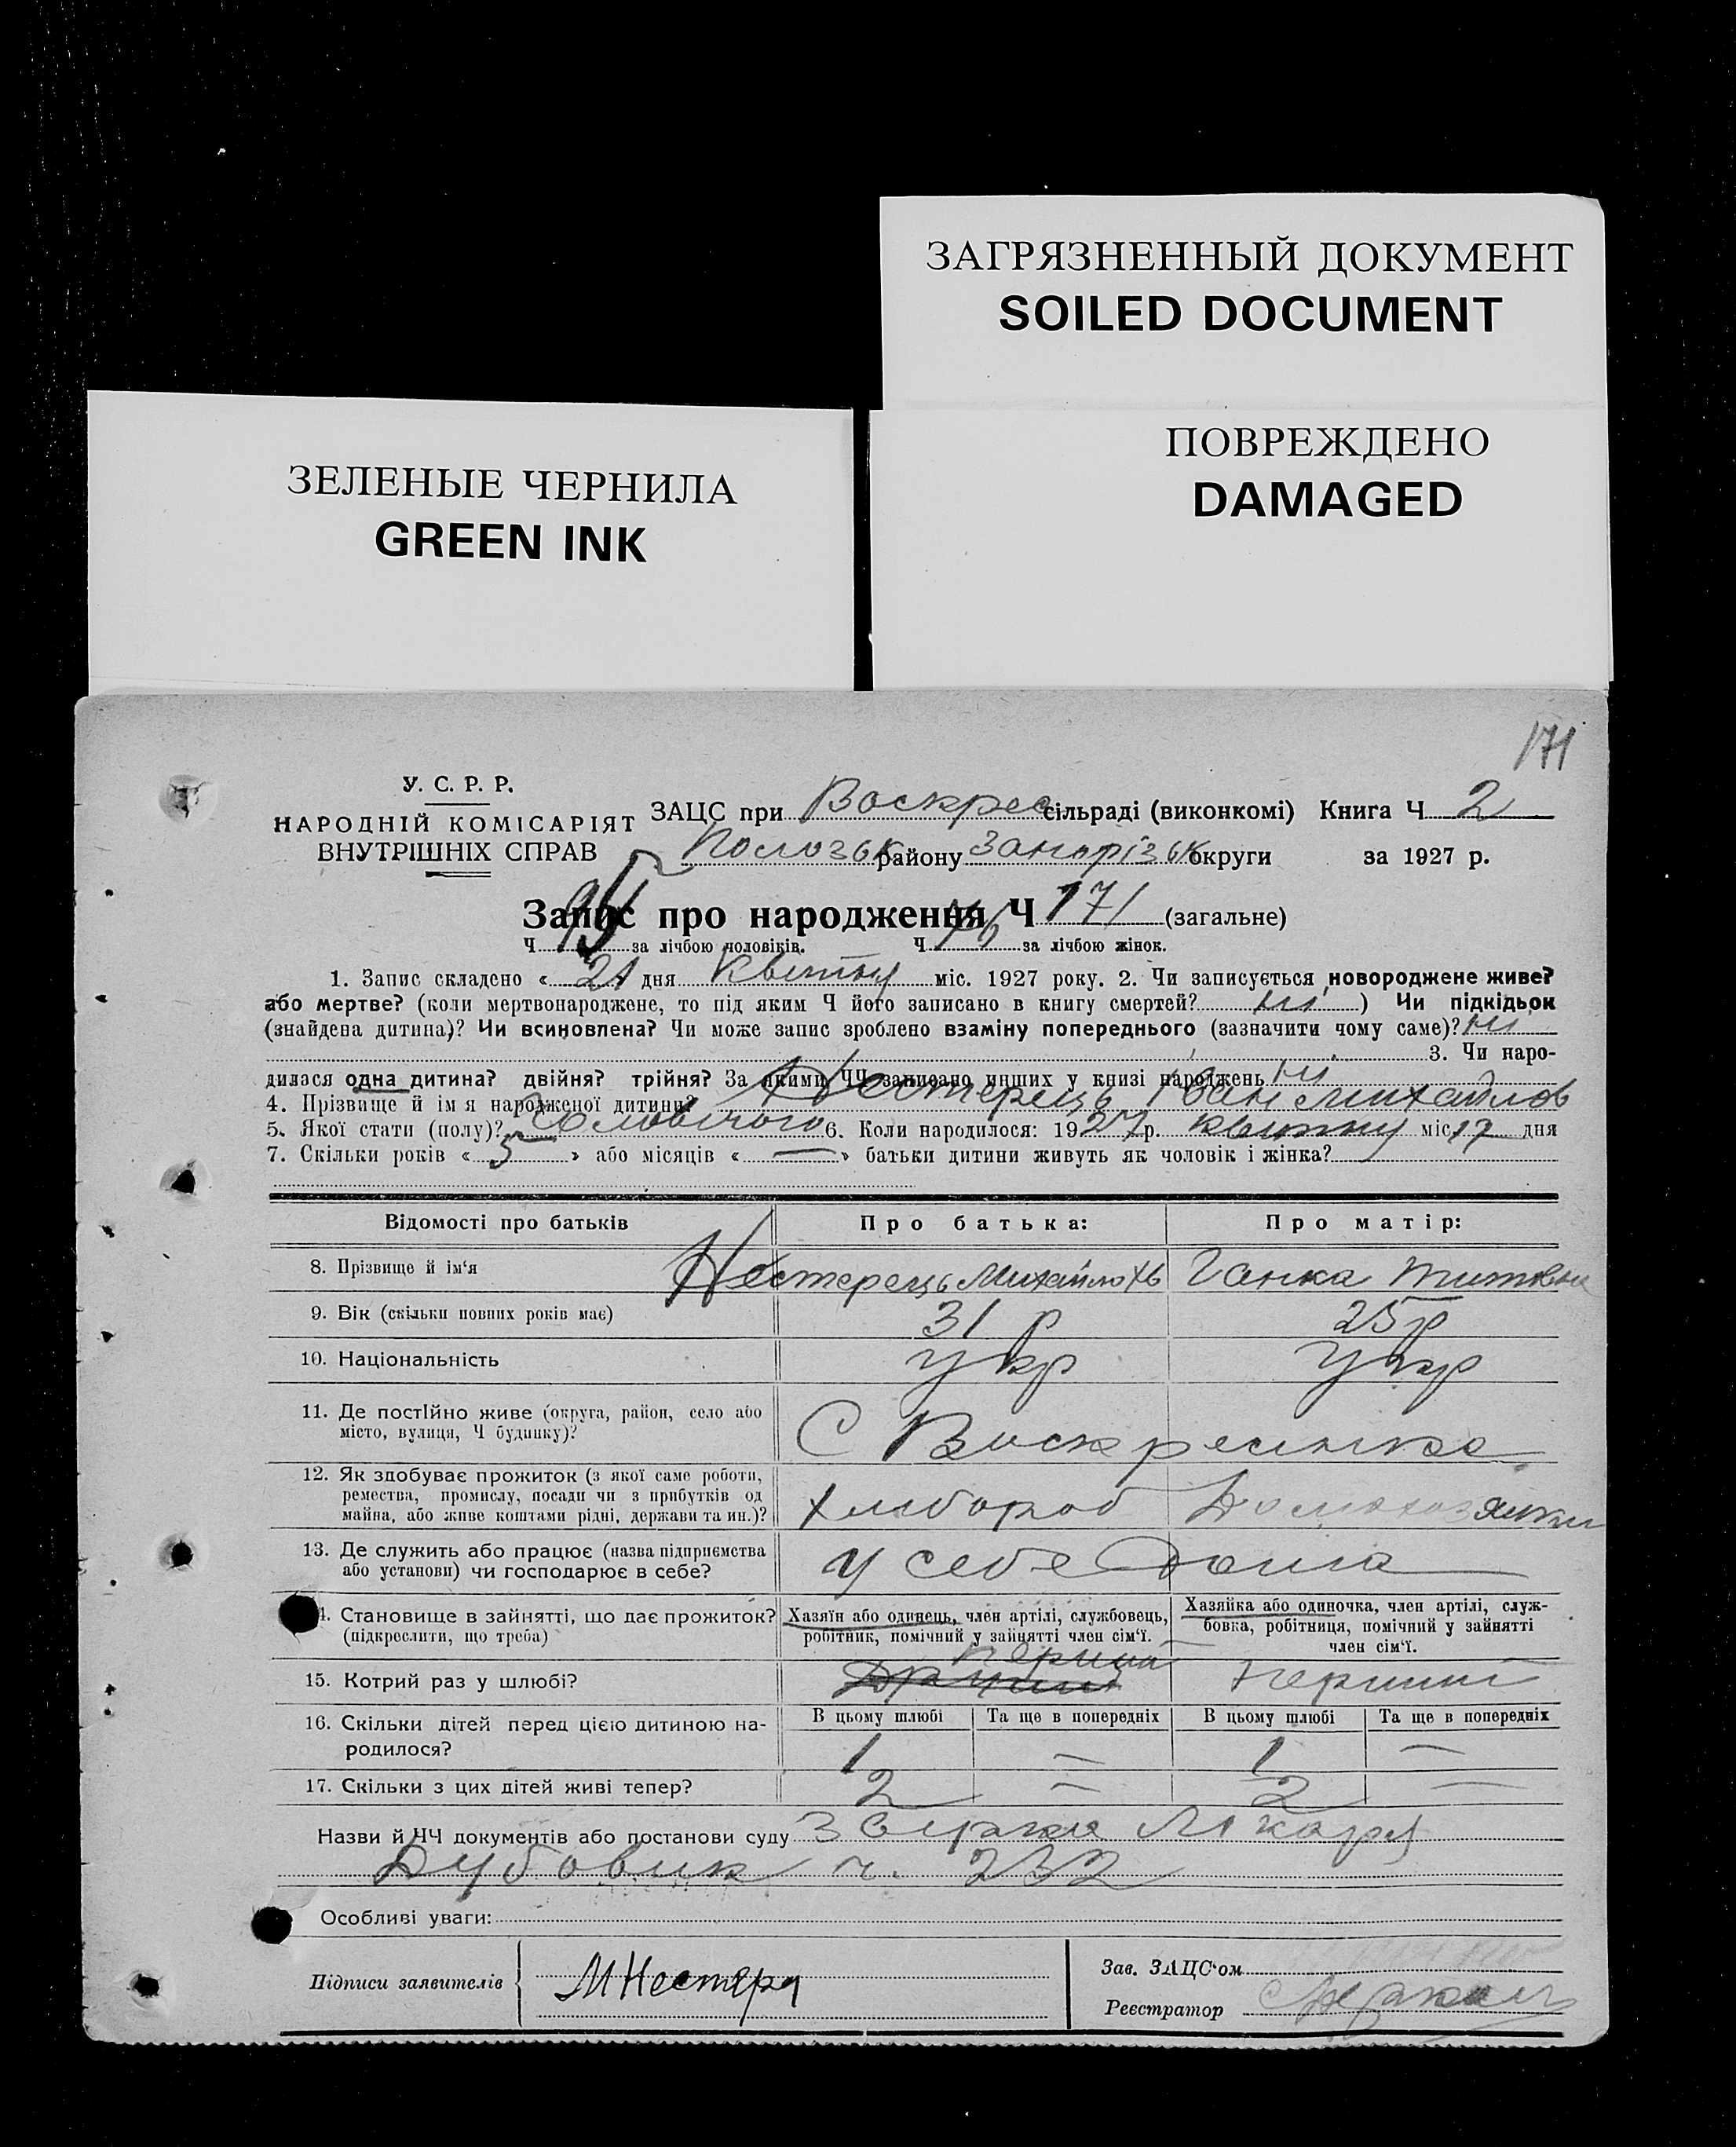 ЗАГРЯЗНЕННЫЙ ДОКУМЕНТ
SOILED DOCUMENT
ПОВРЕЖДЕНО
DAMAGED
ЗЕЛЕНЫЕ ЧЕРНИЛА
GREEN INK
171
У. С. Р. Р.
НАРОДНІЙ КОМІСАРІЯТ
ВНУТРІШНІХ СПРАВ
ЗАЦС при Воскрес сільраді (виконкомі) Книга Ч 2
Пологзьк району Запорізьк округи за 1927 р.
Запис про народження Ч 171 (загальне)
Ч 95 за лічбою чоловіків. Ч 76 за лічбою жінок.
1. Запис складено « 21 дня Квітну міс. 1927 року. 2. Чи записується новороджене живе?
або мертве? (коли мертвонароджене, то під яким Ч його записано в книгу смертей? ні ) Чи підкідьок
(знайдена дитина)? Чи всиновлена? Чи може запис зроблено взаміну попереднього (зазначити чому саме)? ні
3. Чи наро-
дилася одна дитина? двійня? трійня? За якими ЧЧ записано инших у книзі народжень ні
4. Прізвище й ім я народженої дитини? Нестерець Іван Михайлов
5. Якої стати (полу)? Чоловічого 6. Коли народилося: 1927 р. квітну міс. 17 дня
7. Скільки років « 5 » або місяців « — » батьки дитини живуть як чоловік і жінка?
Відомості про батьків Про батька: Про матір:
8. Прізвище й ім'я Нестерець Михайло Ганка Титовна
9. Вік (скільки повних років має) 31 р 25 р
10. Національність укр укр
11. Де постійно живе (округа, район, село або
місто, вулиця, Ч будинку)? С Воскресинка
12. Як здобуває прожиток (з якої саме роботи,
ремества, промислу, посади чи з прибутків од
майна, або живе коштами рідні, держави та ин.)? Хлібороб Домохозяйки
13. Де служить або працює (назва підприємства
або установи) чи господарює в себе? У себе Дома
14. Становище в зайнятті, що дає прожиток?
(підкреслити, що треба)
Хазяїн або одинець, член артілі, службовець,
робітник, помічний у зайнятті член сім'ї.
Хазяйка або одиночка, член артілі, служ-
бовка, робітниця, помічний у зайнятті
член сім'ї.
15. Котрий раз у шлюбі? Перший Перший
16. Скільки дітей перед цією дитиною на-
родилося?
В цьому шлюбі Та ще в попередніх В цьому шлюбі Та ще в попередніх
1 — 1 —
17. Скільки з цих дітей живі тепер? 2 — 2 —
Назви й ЧЧ документів або постанови суду
Дубовик ч. 232
Особливі уваги:
Підписи заявителів М Нестерец
Зав. ЗАЦС'ом
Реєстратор